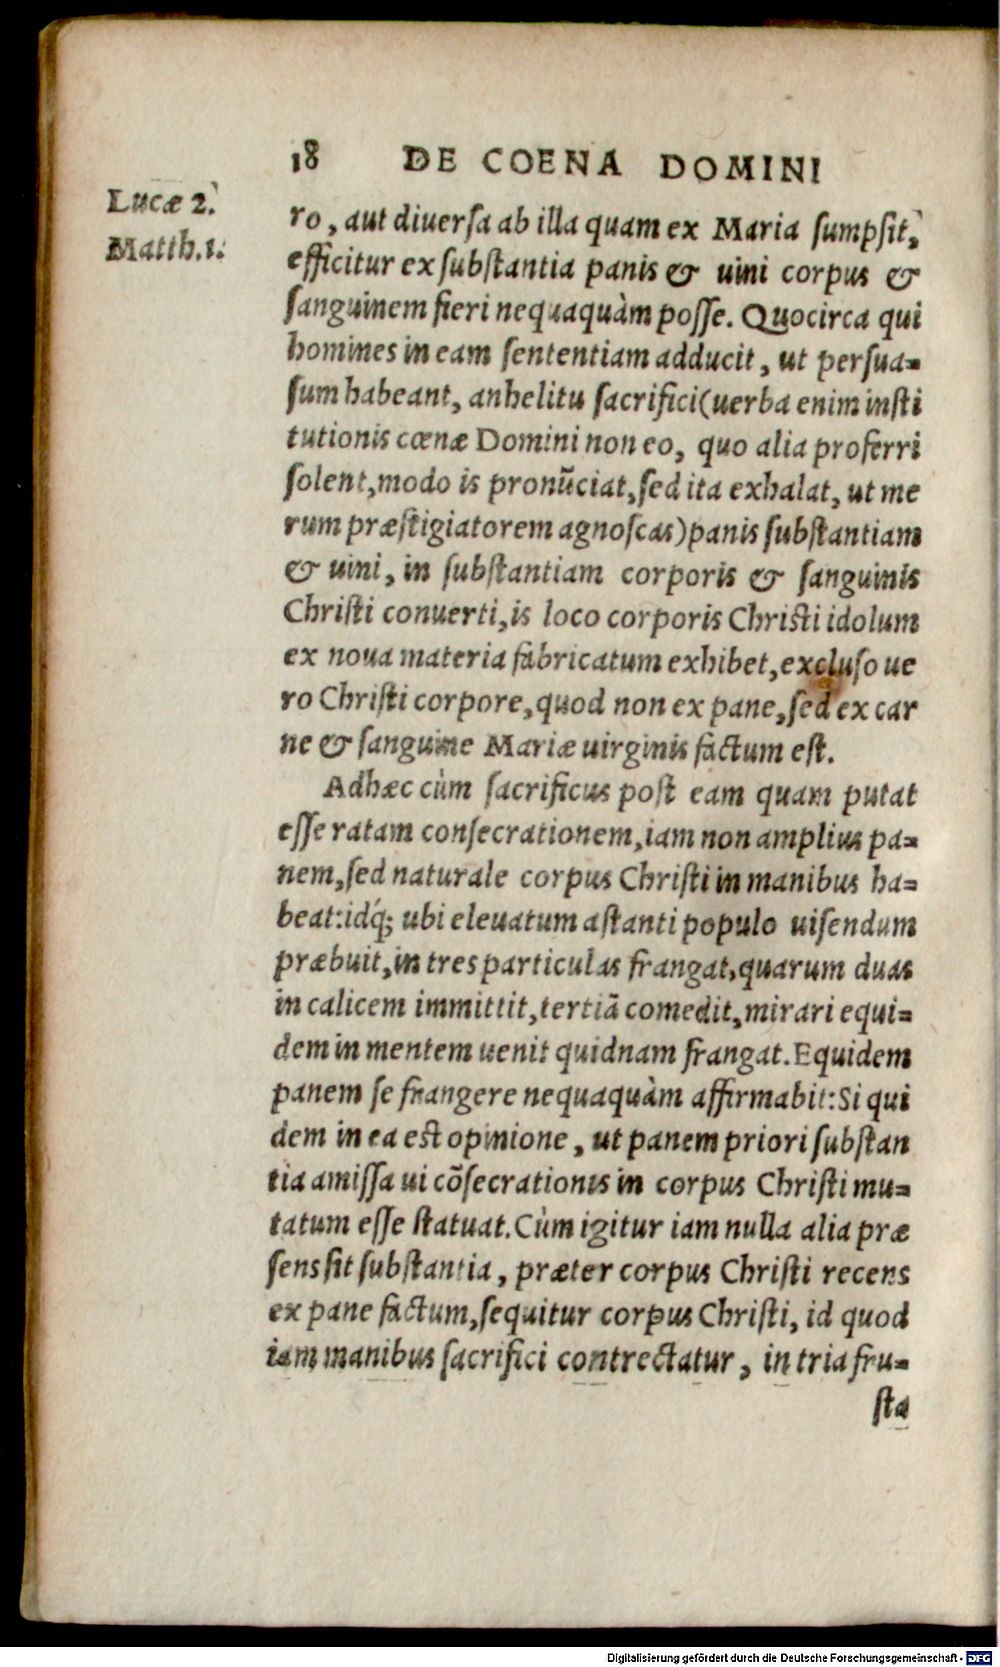 18 DE COENA DOMINI
Lucæ 2.
Matth.1.
ro, aut diuerſa ab illa quam ex Maria ſumpſit,
efficitur ex ſubſtantia panis & uini corpus &
ſanguinem fieri nequaquàm poſſe. Quocirca qui
homines in eam ſententiam adducit, ut perſua-
ſum habeant, anhelitu ſacrifici(uerba enim inſti
tutionis cœnæ Domini non eo, quo alia proferri
ſolent,modo is pronũciat,ſed ita exhalat, ut me
rum præſtigiatorem agnoſcas)panis ſubſtantiam
& uini, in ſubſtantiam corporis & ſanguinis
Chriſti conuerti,is loco corporis Chriſti idolum
ex noua materia fabricatum exhibet,excluſo ue
ro Chriſti corpore,quod non ex pane,ſed ex car
ne & ſanguine Mariæ uirginis factum eſt.
Adhæc cùm ſacrificus poſt eam quam putat
eſſe ratam conſecrationem,iam non amplius pa-
nem,ſed naturale corpus Chriſti in manibus ha-
beat:idq́; ubi eleuatum aſtanti populo uiſendum
præbuit,in tres particulas frangat,quarum duas
in calicem immittit,tertiã comedit,mirari equi-
dem in mentem uenit quidnam frangat. Equidem
panem ſe frangere nequaquàm affirmabit:Si qui
dem in ea eſt opinione, ut panem priori ſubſtan
tia amiſſa ui cõſecrationis in corpus Chriſti mu-
tatum eſſe ſtatuat. Cùm igitur iam nulla alia præ
ſens ſit ſubſtantia, præter corpus Chriſti recens
ex pane factum,ſequitur corpus Chriſti, id quod
iam manibus ſacrifici contrectatur, in tria fru-
ſta
Digitalisierung gefördert durch die Deutsche Forschungsgemeinschaft - DFG